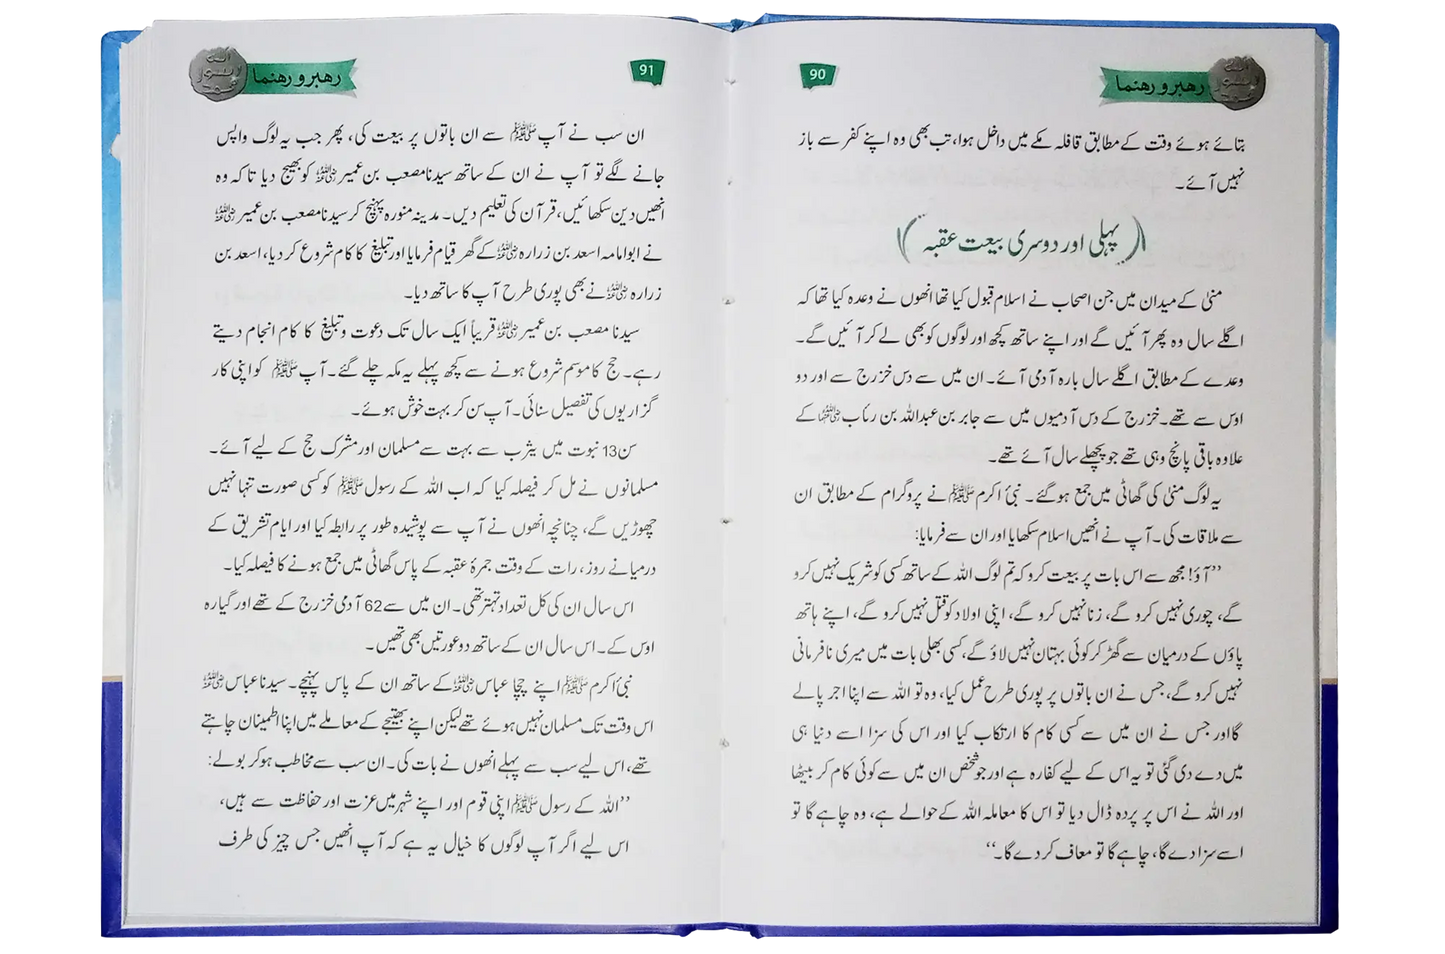 رهبر و رهنما
90
بتائے ہوئے وقت کے مطابق قافلہ مکے میں داخل ہوا، تب بھی وہ اپنے کفر سے باز
نہیں آئے۔
پہلی اور دوسری بیعت عقبہ
منیٰ کے میدان میں جن اصحاب نے اسلام قبول کیا تھا انھوں نے وعدہ کیا تھا کہ
اگلے سال وہ پھر آئیں گے اور اپنے ساتھ کچھ اور لوگوں کو بھی لے کر آئیں گے۔
وعدے کے مطابق اگلے سال بارہ آدمی آئے۔ ان میں سے دس خزرج سے اور دو
اوس سے تھے۔ خزرج کے دس آدمیوں میں سے جابر بن عبداللہ بن رئاب رضی اللہ عنہما کے
علاوہ باقی پانچ وہی تھے جو پچھلے سال آئے تھے۔
یہ لوگ منیٰ کی گھاٹی میں جمع ہو گئے۔ نبیٔ اکرم ﷺ نے پروگرام کے مطابق ان
سے ملاقات کی۔ آپ نے انھیں اسلام سکھایا اور ان سے فرمایا:
”آؤ! مجھ سے اس بات پر بیعت کرو کہ تم لوگ اللہ کے ساتھ کسی کو شریک نہیں کرو
گے، چوری نہیں کرو گے، زنا نہیں کرو گے، اپنی اولاد کو قتل نہیں کرو گے، اپنے ہاتھ
پاؤں کے درمیان سے گھڑ کر کوئی بہتان نہیں لاؤ گے، کسی بھلی بات میں میری نافرمانی
نہیں کرو گے، جس نے ان باتوں پر پوری طرح عمل کیا، وہ تو اللہ سے اپنا اجر پا لے
گا اور جس نے ان میں سے کسی کام کا ارتکاب کیا اور اس کی سزا اسے دنیا ہی
میں دے دی گئی تو یہ اس کے لیے کفارہ ہے اور جو شخص ان میں سے کوئی کام کر بیٹھا
اور اللہ نے اس پر پردہ ڈال دیا تو اس کا معاملہ اللہ کے حوالے ہے، وہ چاہے گا تو
اسے سزا دے گا، چاہے گا تو معاف کر دے گا۔“
91
رهبر و رهنما
ان سب نے آپ ﷺ سے ان باتوں پر بیعت کی، پھر جب یہ لوگ واپس
جانے لگے تو آپ نے ان کے ساتھ سیدنا مصعب بن عمیر رضی اللہ عنہ کو بھیج دیا تا کہ وہ
انھیں دین سکھائیں، قرآن کی تعلیم دیں۔ مدینہ منورہ پہنچ کر سیدنا مصعب بن عمیر رضی اللہ عنہ
نے ابوامامہ اسعد بن زرارہ رضی اللہ عنہ کے گھر قیام فرمایا اور تبلیغ کا کام شروع کر دیا، اسعد بن
زرارہ رضی اللہ عنہ نے بھی پوری طرح آپ کا ساتھ دیا۔
سیدنا مصعب بن عمیر رضی اللہ عنہ قریباً ایک سال تک دعوت و تبلیغ کا کام انجام دیتے
رہے۔ حج کا موسم شروع ہونے سے کچھ پہلے یہ مکہ چلے گئے۔ آپ ﷺ کو اپنی کار
گزاریوں کی تفصیل سنائی۔ آپ سن کر بہت خوش ہوئے۔
سن 13 نبوت میں یثرب سے بہت سے مسلمان اور مشرک حج کے لیے آئے۔
مسلمانوں نے مل کر فیصلہ کیا کہ اب اللہ کے رسول ﷺ کو کسی صورت تنہا نہیں
چھوڑیں گے، چنانچہ انھوں نے آپ سے پوشیدہ طور پر رابطہ کیا اور ایام تشریق کے
درمیانے روز، رات کے وقت جمرۂ عقبہ کے پاس گھاٹی میں جمع ہونے کا فیصلہ کیا۔
اس سال ان کی کل تعداد تہتر تھی۔ ان میں سے 62 آدمی خزرج کے تھے اور گیارہ
اوس کے۔ اس سال ان کے ساتھ دو عورتیں بھی تھیں۔
نبیٔ اکرم ﷺ اپنے چچا عباس رضی اللہ عنہ کے ساتھ ان کے پاس پہنچے۔ سیدنا عباس رضی اللہ عنہ
اس وقت تک مسلمان نہیں ہوئے تھے لیکن اپنے بھتیجے کے معاملے میں اپنا اطمینان چاہتے
تھے، اس لیے سب سے پہلے انھوں نے بات کی۔ ان سب سے مخاطب ہو کر بولے:
”اللہ کے رسول ﷺ اپنی قوم اور اپنے شہر میں عزت اور حفاظت سے ہیں،
اس لیے اگر آپ لوگوں کا خیال یہ ہے کہ آپ انھیں جس چیز کی طرف